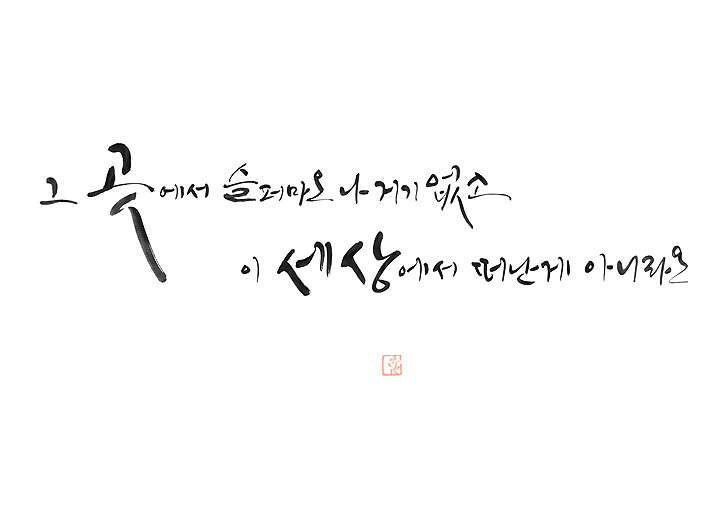 그 곳에서 슬퍼마오 나 거기 없소
이 세상에서 떠난게 아니라오